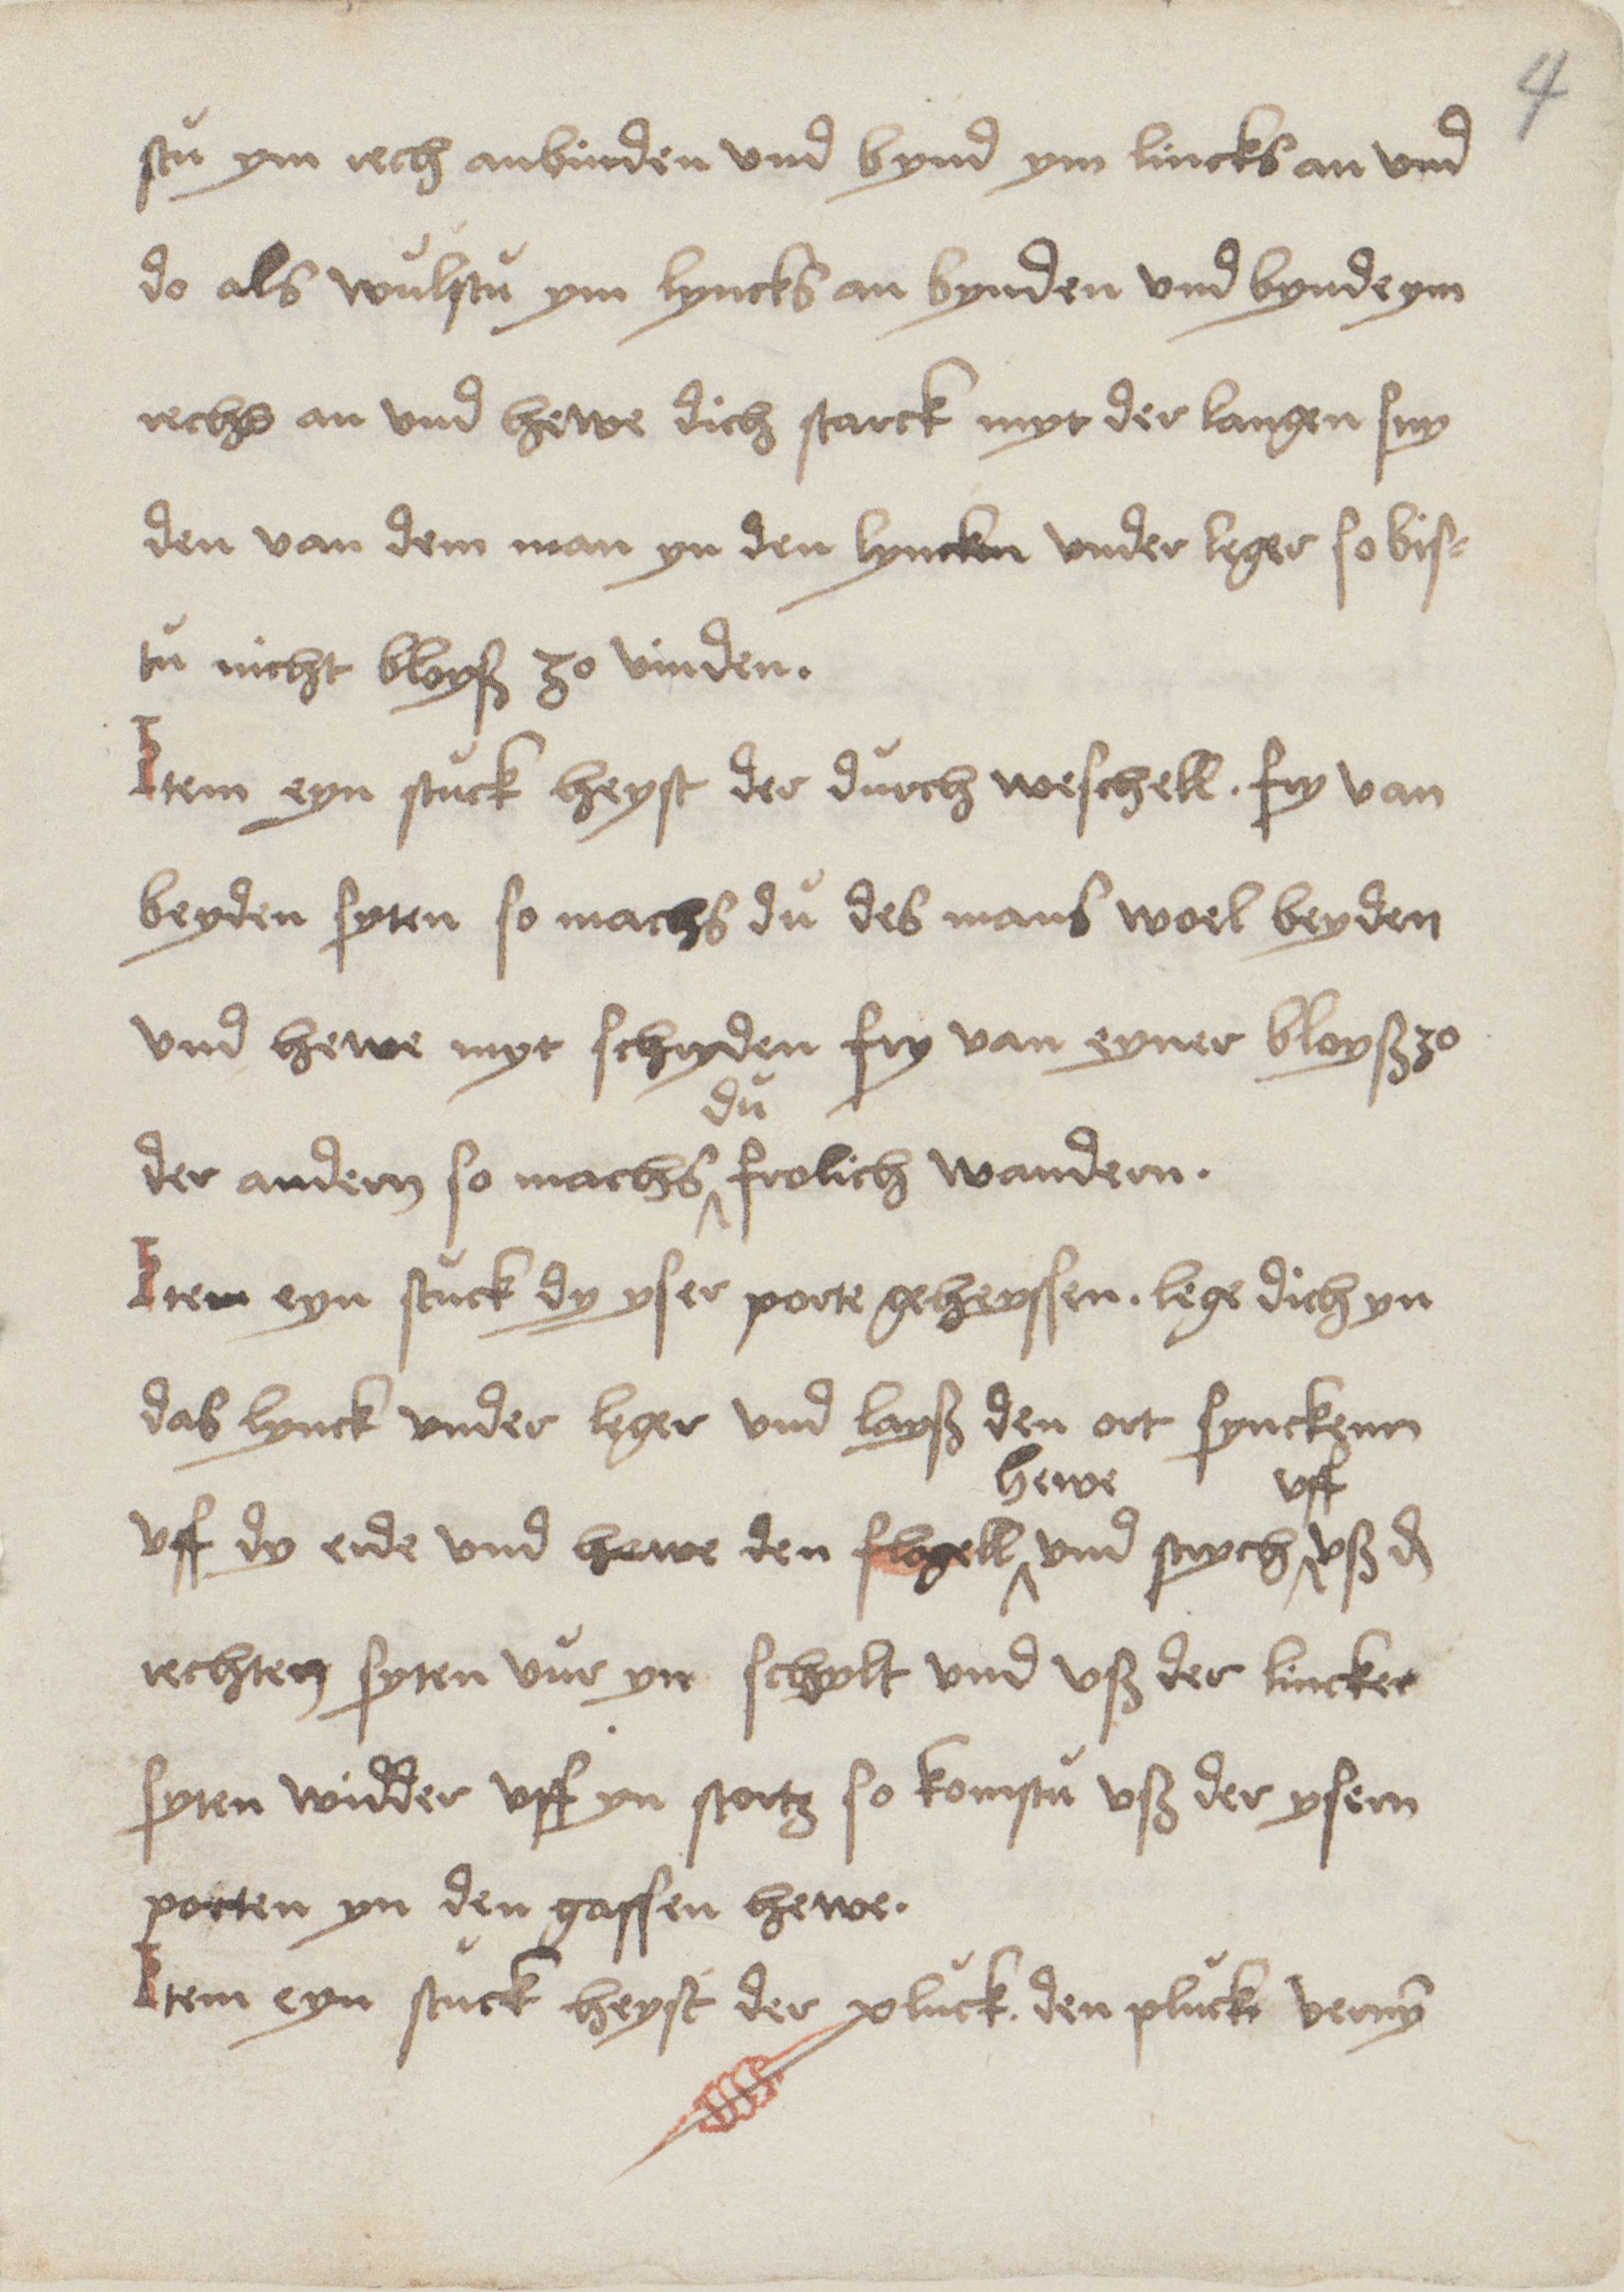 4
stu ym rech anbinden vnd bynd ym lincks an vnd
do als wulstu ym lyncks an bynden vnd bynde ym
rechs an vnd hewe dich starck myt der langen sny
den van dem man yn den lyncken vnder leger so bis-
tu nicht bloyß zo vinden.
Item eyn stuck heyst der durch weschell. fry van
beyden syten so machs du des mans woel beyden
vnd hewe myt schnyden fry van eyner bloyß zo
du
der andern so machs frolich wandern.
Item eyn stuck dy yser porte geheyssen. lege dich yn
das lynck vnder leger vnd layß den ort synckenn
hewe vff
vff dy erde vnd hewe den flogell vnd strych vß d
rechten syten vur yn schylt vnd vß der lincker
syten widder vff yn stortz so komstu vß der ysern
porten yn den gassen hewe.
Item eyn stuck heyst der pluck. den pluck verny̅